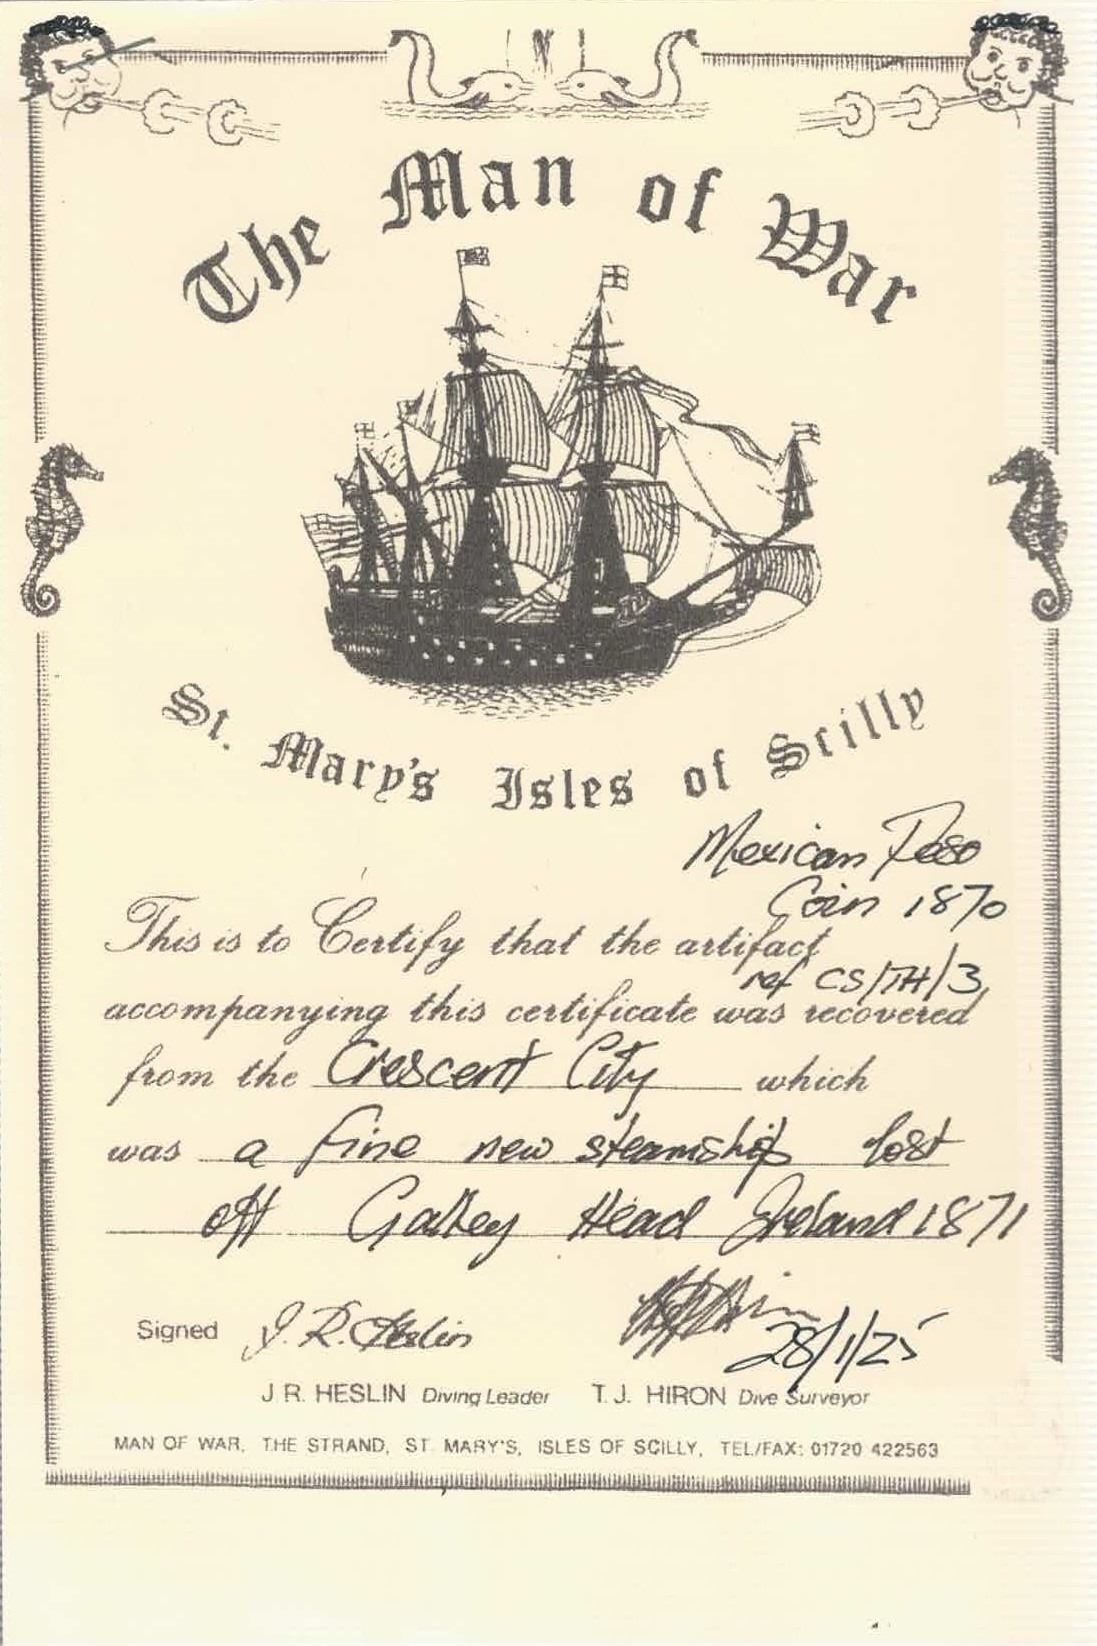 The Man of War
St. Mary's Isles of Scilly
Mexican Peso
Coin 1870
This is to Certify that the artifact
ref CS/TH/3
accompanying this certificate was recovered
from the Crescent City which
was a fine new steamship lost
off Galley Head Ireland 1871
Signed J. R. Heslin
28/1/25
J R. HESLIN Diving Leader T. J. HIRON Dive Surveyor
MAN OF WAR, THE STRAND, ST MARY'S, ISLES OF SCILLY, TEL/FAX: 01720 422563